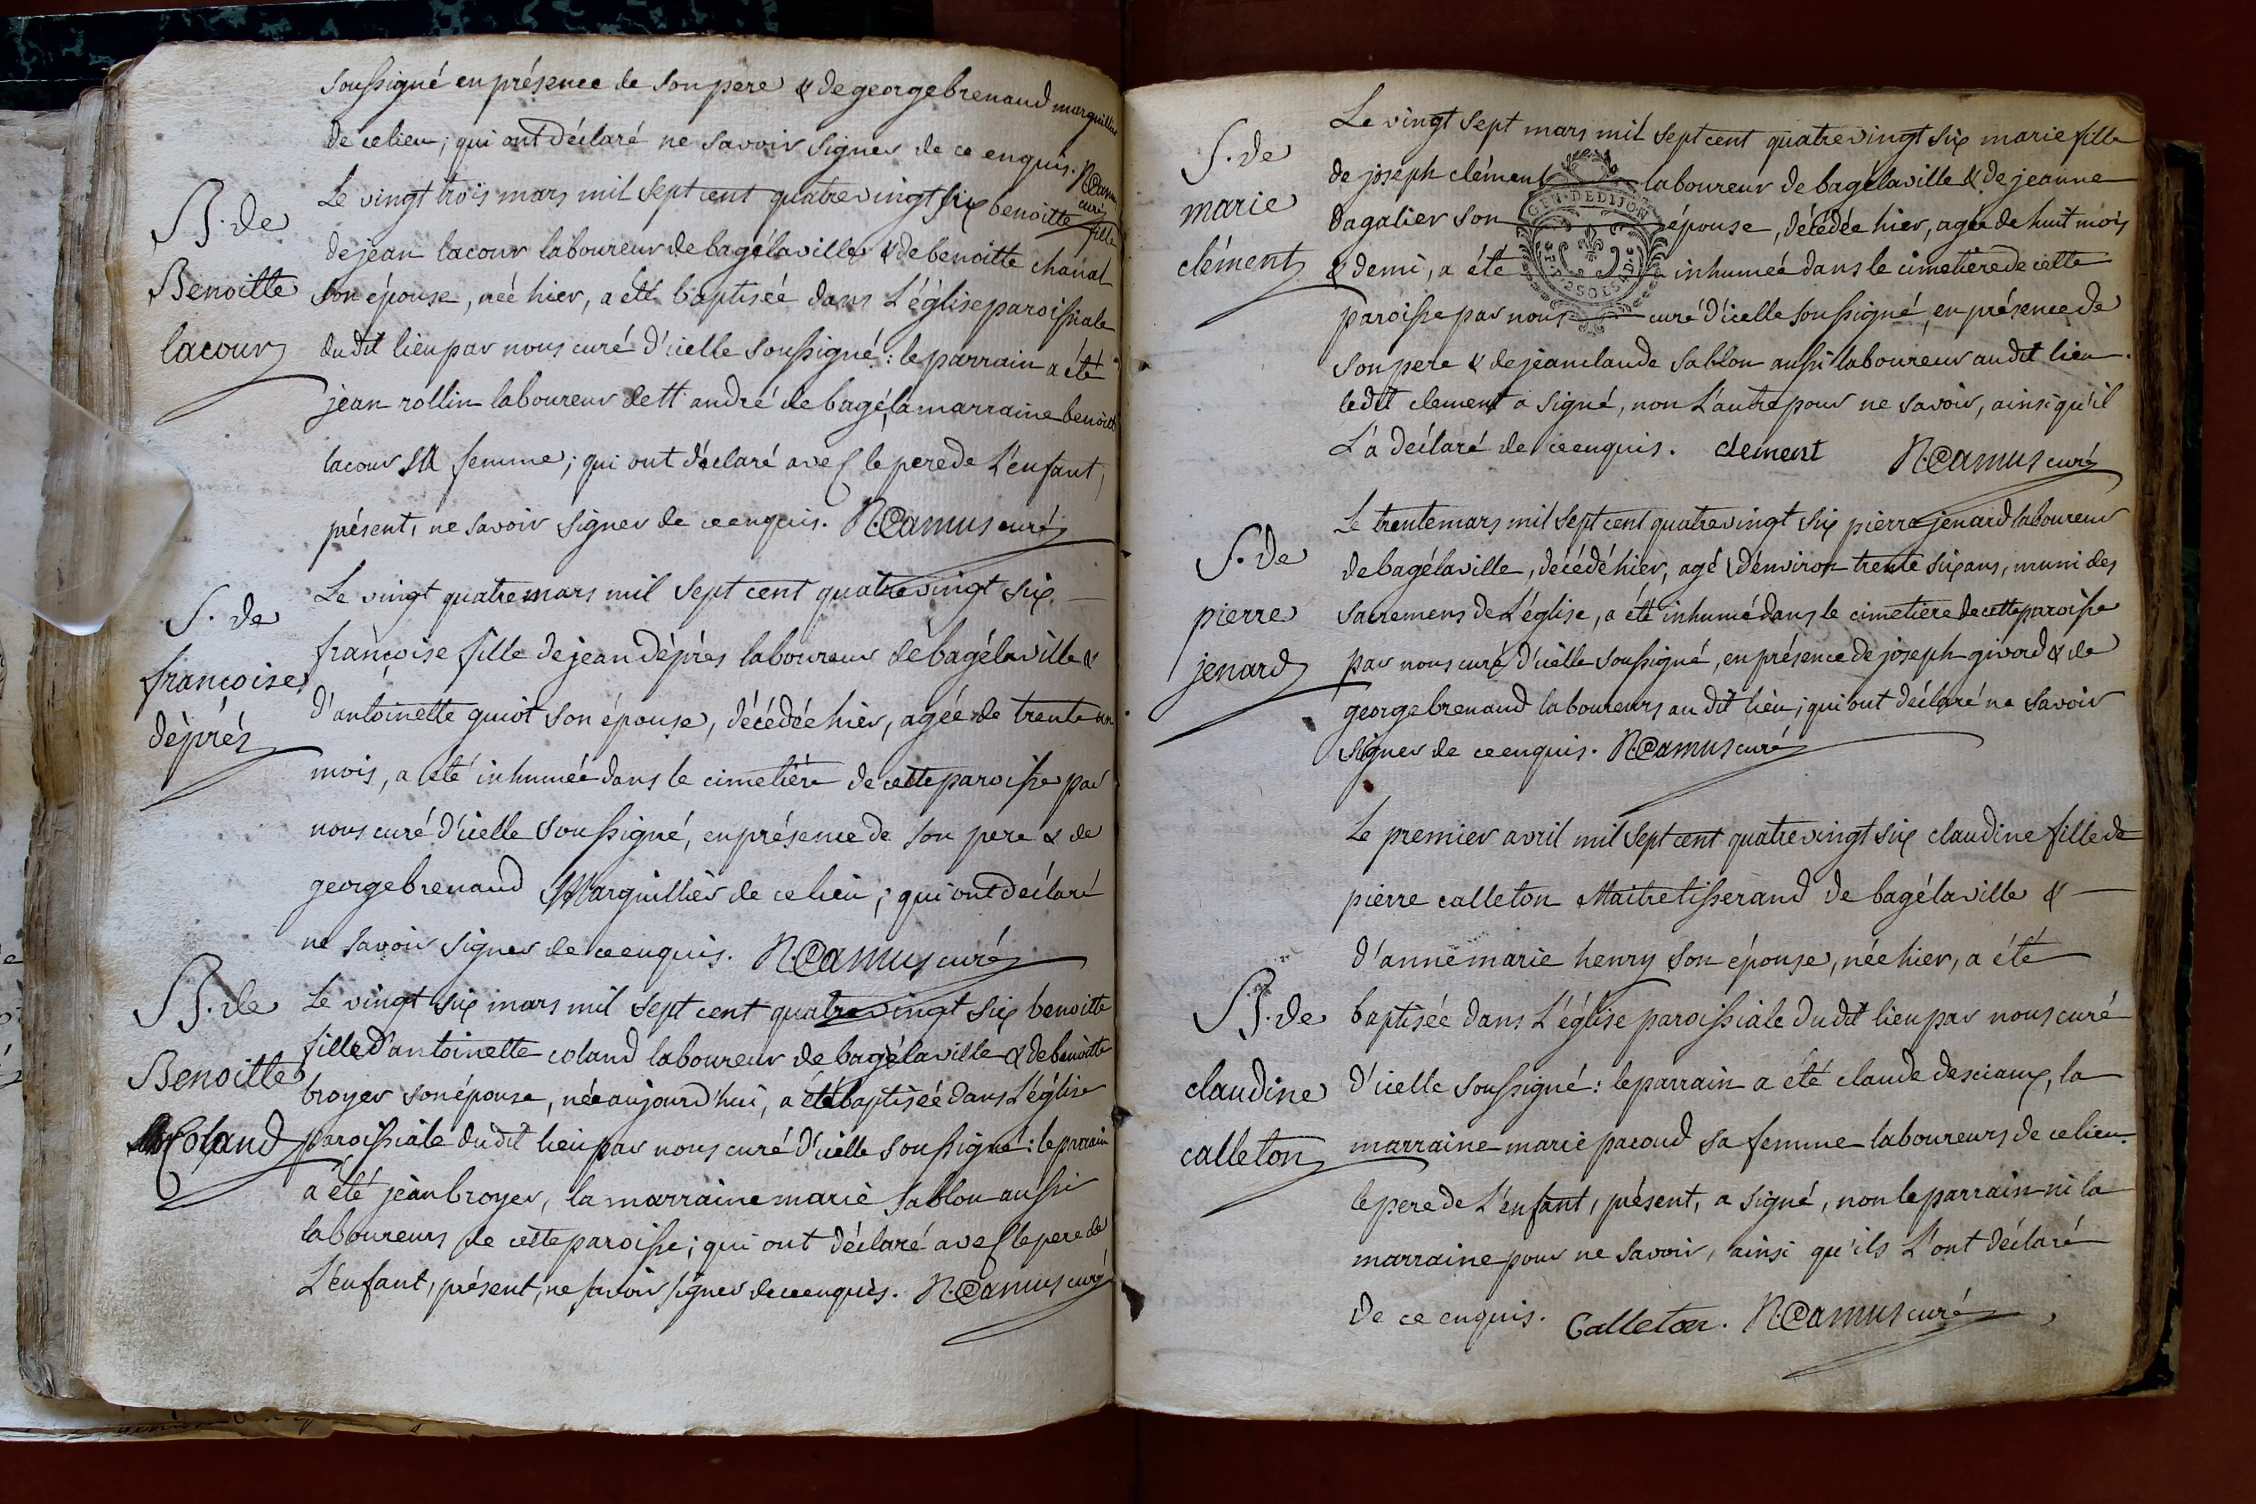 soussigné en présence de son pere & de george brenaud marguillier
de ce lieu; qui ont déclaré ne savoir signer de ce enquis. N. Camus
curé
B. de
Benoitte
lacour
Le vingt trois mars mil sept cent quatre vingt six benoitte fille
de jean lacour laboureur de bagélaville & de benoitte chanal
son épouse, née hier, a été baptisée dans L'église paroissiale
du dit lieu par nous curé d'icelle soussigné: le parrain a été
jean rollin laboureur de st andré de bagé, la marraine benoitte
lacour sa femme; qui ont déclaré avec le pere de L'enfant,
présent, ne savoir signer de ce enquis. N. Camus curé
S. de
françoise
déprés
Le vingt quatre mars mil sept cent quatre vingt six
françoise fille de jean déprés laboureur de bagélaville &
d'antoinette guiot son épouse, décédée hier, agée de trente un
mois, a été inhumée dans le cimetière de cette paroisse par
nous curé d'icelle soussigné, en présence de son pere & de
george brenaud Marguillier de ce lieu; qui ont déclaré
ne savoir signer de ce enquis. N. Camus curé
B. de
Benoitte
Coland
Le vingt six mars mil sept cent quatre vingt six benoitte
fille d'antoinette coland laboureur de bagélaville & de benoitte
broyer son épouse, née aujourd'hui, a été baptisée dans L'église
paroissiale du dit lieu par nous curé d'icelle soussigné: le parrain
a été jean broyer, la marraine marie sablon aussi
laboureurs de cette paroisse; qui ont déclaré avec le pere de
L'enfant, présent, ne savoir signer de ce enquis. N. Camus curé
S. de
marie
clément
Le vingt sept mars mil sept cent quatre vingt six marie fille
de joseph clément laboureur de bagélaville & de jeanne
dagalier son épouse, décédée hier, agée de huit mois
& demi, a été inhumée dans le cimetière de cette
paroisse par nous curé d'icelle soussigné, en présence de
son pere & de jean claude sablon aussi laboureur au dit lieu.
ledit clement a signé, non L'autre pour ne savoir, ainsi qu'il
L'a déclaré de ce enquis. clement N. Camus curé
GEN. DE DIJON
S. de
pierre
jenard
Le trente mars mil sept cent quatre vingt six pierre jenard laboureur
de bagélaville, décédé hier, agé d'environ trente six ans, muni des
sacremens de L'église, a été inhumé dans le cimetière de cette paroisse
par nous curé d'icelle soussigné, en présence de joseph givord & de
george brenaud laboureurs au dit lieu; qui ont déclaré ne savoir
signer de ce enquis. N. Camus curé
B. de
claudine
calleton
Le premier avril mil sept cent quatre vingt six claudine fille de
pierre calleton Maitre tisserand de bagélaville &
d'anne marie henry son épouse, née hier, a été
baptisée dans L'église paroissiale du dit lieu par nous curé
d'icelle soussigné: le parrain a été claude desciaux, la
marraine marie pacoud sa femme laboureurs de ce lieu.
le pere de L'enfant, présent, a signé, non le parrain ni la
marraine pour ne savoir, ainsi qu'ils L'ont déclaré
de ce enquis. Calleton. N. Camus curé